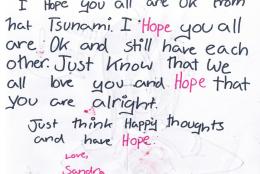 I Hope you all are Ok from
hat Tsunami. I Hope you all
are Ok and still have each
other. Just know that we
all love you and Hope that
you are alright.
Just think Happy thoughts
and have Hope.
Love,
Sandra